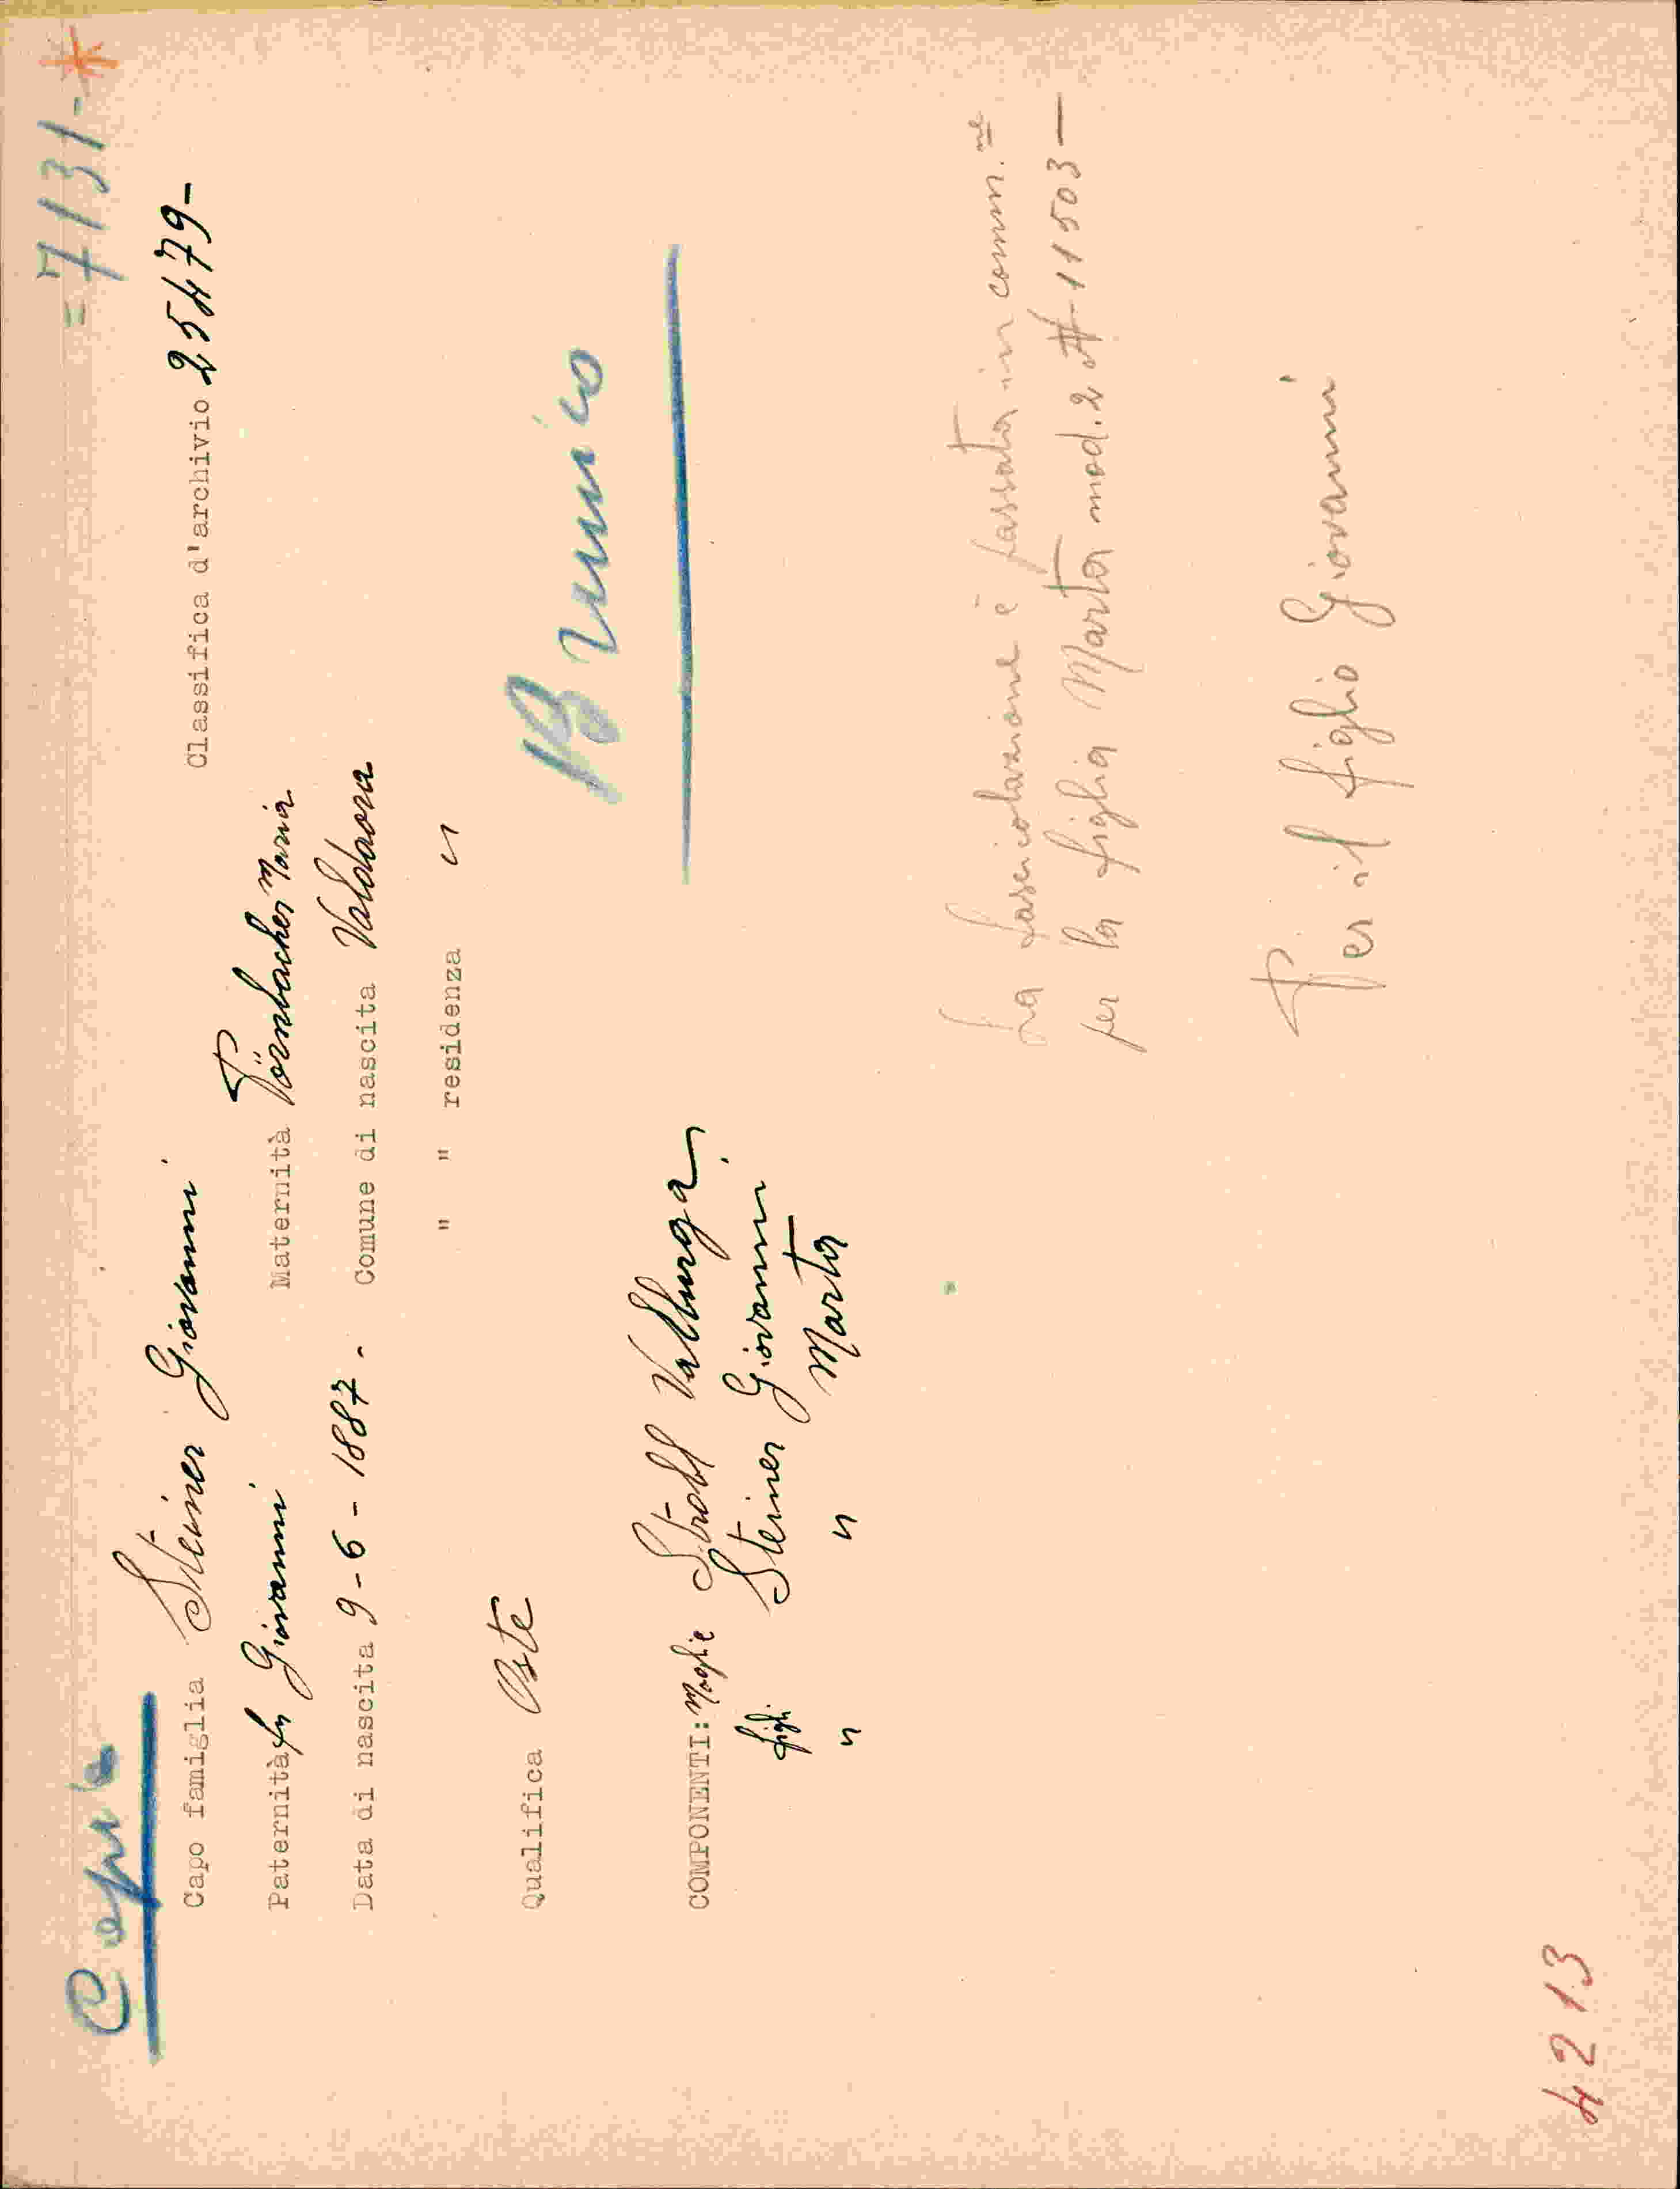 Copia
= 7131 -
Capo famiglia Steiner Giovanni
Classifica d'archivio 25479-
Paternità fu Giovanni Maternità Pörnbacher Maria
Data di nascita 9-6-1887- Comune di nascita Valdaora
" " residenza "
Qualifica Oste
Brunico
COMPONENTI: Moglie Strobl Valburga
figli Steiner Giovanni
" " Marta
La fascicolazione è passata in comm.ne
per la figlia Marta mod. 2 A-11503-
Per il figlio Giovanni
4213